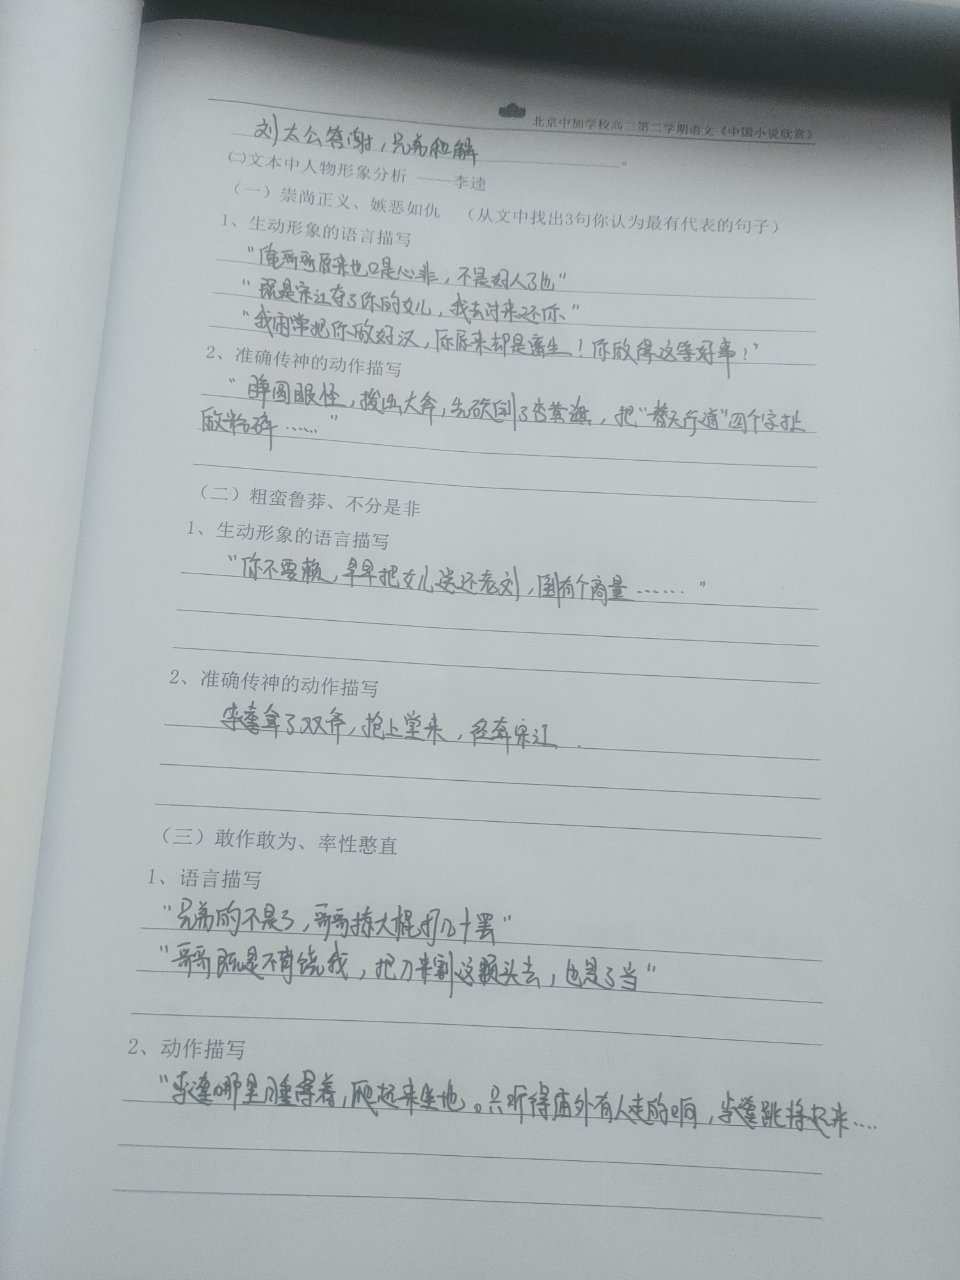 北京中加学校高二第二学期语文《中国小说欣赏》
刘太公答谢，兄弟和解。
㈡文本中人物形象分析 ——李逵
（一）崇尚正义、嫉恶如仇 （从文中找出3句你认为最有代表的句子）
1、生动形象的语言描写
“俺哥哥原来也口是心非，不是好人了也”
“既是宋江夺了你的女儿，我去讨来还你”
“我闲常把你做好汉，你原来却是畜生！你做得这等好事！”
2、准确传神的动作描写
“睁圆眼怪，拨出大斧，先砍倒了杏黄旗，把“替天行道”四个字扯
做粉碎……”
（二）粗蛮鲁莽、不分是非
1、生动形象的语言描写
“你不要赖，早早把女儿送还老刘，倒有个商量……”
2、准确传神的动作描写
李逵拿了双斧，抢上堂来，径奔宋江.
（三）敢作敢为、率性憨直
1、语言描写
“兄弟的不是了，哥哥拣大棍打几十罢”
“哥哥既是不肯饶我，把刀来割这颗头去，也是了当”
2、动作描写
“李逵哪里睡得着，爬起来坐地。只听得庙外有人走的响，李逵跳将起来….